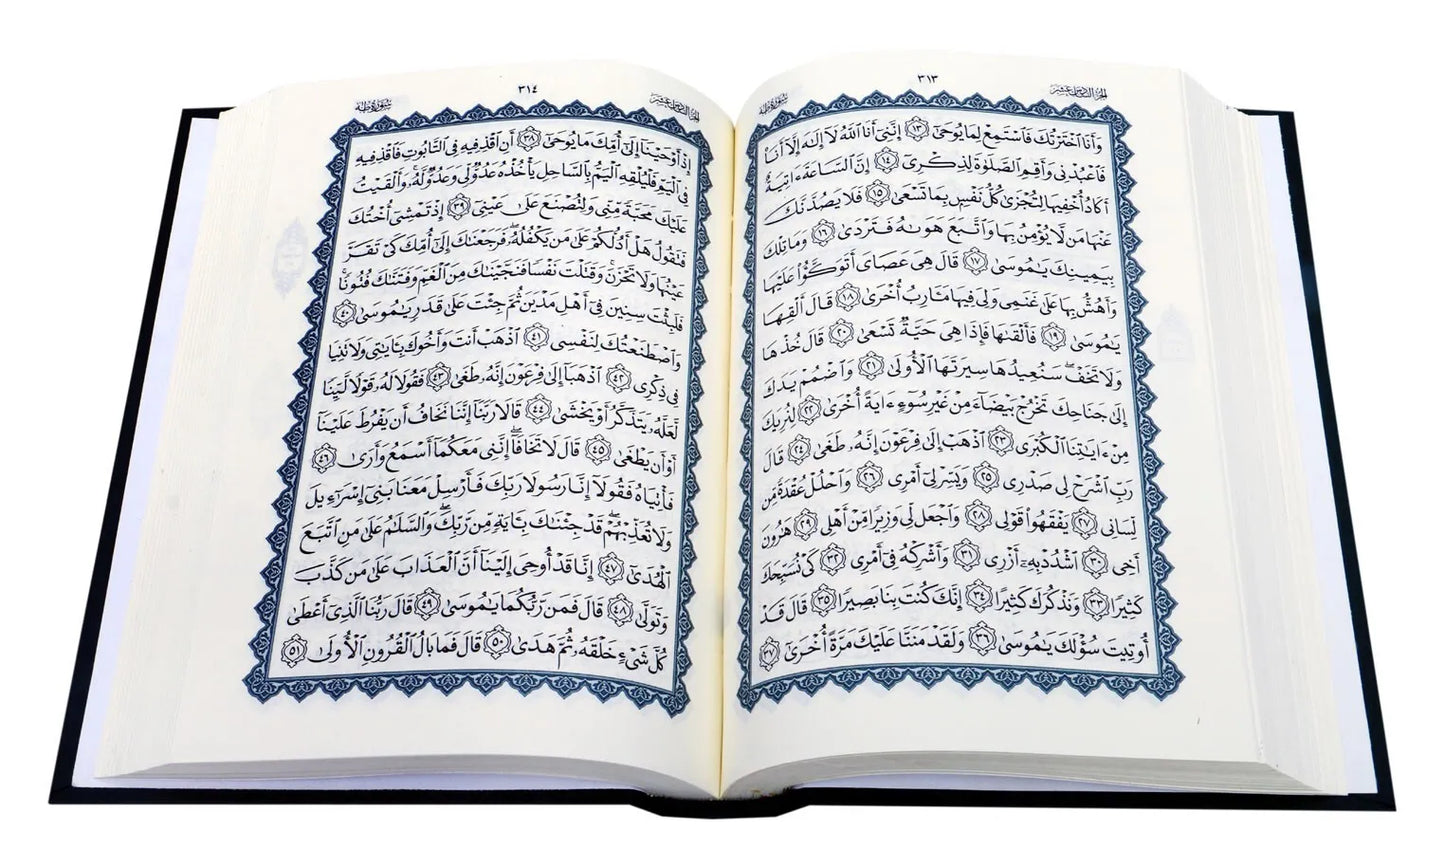 الجزء السادس عشر
٣١٣
سورة طه
وَأَنَا ٱخْتَرْتُكَ فَٱسْتَمِعْ لِمَا يُوحَىٰٓ ١٣ إِنَّنِىٓ أَنَا ٱللَّهُ لَآ إِلَٰهَ إِلَّآ أَنَا۠
فَٱعْبُدْنِى وَأَقِمِ ٱلصَّلَوٰةَ لِذِكْرِىٓ ١٤ إِنَّ ٱلسَّاعَةَ ءَاتِيَةٌ
أَكَادُ أُخْفِيهَا لِتُجْزَىٰ كُلُّ نَفْسٍۭ بِمَا تَسْعَىٰ ١٥ فَلَا يَصُدَّنَّكَ
عَنْهَا مَن لَّا يُؤْمِنُ بِهَا وَٱتَّبَعَ هَوَىٰهُ فَتَرْدَىٰ ١٦ وَمَا تِلْكَ
بِيَمِينِكَ يَٰمُوسَىٰ ١٧ قَالَ هِىَ عَصَاىَ أَتَوَكَّؤُا۟ عَلَيْهَا
وَأَهُشُّ بِهَا عَلَىٰ غَنَمِى وَلِىَ فِيهَا مَـَٔارِبُ أُخْرَىٰ ١٨ قَالَ أَلْقِهَا
يَٰمُوسَىٰ ١٩ فَأَلْقَىٰهَا فَإِذَا هِىَ حَيَّةٌ تَسْعَىٰ ٢٠ قَالَ خُذْهَا
وَلَا تَخَفْ ۖ سَنُعِيدُهَا سِيرَتَهَا ٱلْأُولَىٰ ٢١ وَٱضْمُمْ يَدَكَ
إِلَىٰ جَنَاحِكَ تَخْرُجْ بَيْضَآءَ مِنْ غَيْرِ سُوٓءٍ ءَايَةً أُخْرَىٰ ٢٢ لِنُرِيَكَ
مِنْ ءَايَٰتِنَا ٱلْكُبْرَى ٢٣ ٱذْهَبْ إِلَىٰ فِرْعَوْنَ إِنَّهُۥ طَغَىٰ ٢٤ قَالَ
رَبِّ ٱشْرَحْ لِى صَدْرِى ٢٥ وَيَسِّرْ لِىٓ أَمْرِى ٢٦ وَٱحْلُلْ عُقْدَةً مِّن
لِّسَانِى ٢٧ يَفْقَهُوا۟ قَوْلِى ٢٨ وَٱجْعَل لِّى وَزِيرًا مِّنْ أَهْلِى ٢٩ هَٰرُونَ
أَخِى ٣٠ ٱشْدُدْ بِهِۦٓ أَزْرِى ٣١ وَأَشْرِكْهُ فِىٓ أَمْرِى ٣٢ كَىْ نُسَبِّحَكَ
كَثِيرًا ٣٣ وَنَذْكُرَكَ كَثِيرًا ٣٤ إِنَّكَ كُنتَ بِنَا بَصِيرًا ٣٥ قَالَ قَدْ
أُوتِيتَ سُؤْلَكَ يَٰمُوسَىٰ ٣٦ وَلَقَدْ مَنَنَّا عَلَيْكَ مَرَّةً أُخْرَىٰٓ ٣٧
الجزء السادس عشر
٣١٤
سورة طه
إِذْ أَوْحَيْنَآ إِلَىٰٓ أُمِّكَ مَا يُوحَىٰٓ ٣٨ أَنِ ٱقْذِفِيهِ فِى ٱلتَّابُوتِ فَٱقْذِفِيهِ
فِى ٱلْيَمِّ فَلْيُلْقِهِ ٱلْيَمُّ بِٱلسَّاحِلِ يَأْخُذْهُ عَدُوٌّ لِّى وَعَدُوٌّ لَّهُۥ ۚ وَأَلْقَيْتُ
عَلَيْكَ مَحَبَّةً مِّنِّى وَلِتُصْنَعَ عَلَىٰ عَيْنِىٓ ٣٩ إِذْ تَمْشِىٓ أُخْتُكَ
فَتَقُولُ هَلْ أَدُلُّكُمْ عَلَىٰ مَن يَكْفُلُهُۥ ۖ فَرَجَعْنَٰكَ إِلَىٰٓ أُمِّكَ كَىْ تَقَرَّ
عَيْنُهَا وَلَا تَحْزَنَ ۚ وَقَتَلْتَ نَفْسًا فَنَجَّيْنَٰكَ مِنَ ٱلْغَمِّ وَفَتَنَّٰكَ فُتُونًا ۚ
فَلَبِثْتَ سِنِينَ فِىٓ أَهْلِ مَدْيَنَ ثُمَّ جِئْتَ عَلَىٰ قَدَرٍ يَٰمُوسَىٰ ٤٠
وَٱصْطَنَعْتُكَ لِنَفْسِى ٤١ ٱذْهَبْ أَنتَ وَأَخُوكَ بِـَٔايَٰتِى وَلَا تَنِيَا
فِى ذِكْرِى ٤٢ ٱذْهَبَآ إِلَىٰ فِرْعَوْنَ إِنَّهُۥ طَغَىٰ ٤٣ فَقُولَا لَهُۥ قَوْلًا لَّيِّنًا
لَّعَلَّهُۥ يَتَذَكَّرُ أَوْ يَخْشَىٰ ٤٤ قَالَا رَبَّنَآ إِنَّنَا نَخَافُ أَن يَفْرُطَ عَلَيْنَآ
أَوْ أَن يَطْغَىٰ ٤٥ قَالَ لَا تَخَافَآ ۖ إِنَّنِى مَعَكُمَآ أَسْمَعُ وَأَرَىٰ ٤٦
فَأْتِيَاهُ فَقُولَآ إِنَّا رَسُولَا رَبِّكَ فَأَرْسِلْ مَعَنَا بَنِىٓ إِسْرَٰٓءِيلَ
وَلَا تُعَذِّبْهُمْ ۖ قَدْ جِئْنَٰكَ بِـَٔايَةٍ مِّن رَّبِّكَ ۖ وَٱلسَّلَٰمُ عَلَىٰ مَنِ ٱتَّبَعَ
ٱلْهُدَىٰٓ ٤٧ إِنَّا قَدْ أُوحِىَ إِلَيْنَآ أَنَّ ٱلْعَذَابَ عَلَىٰ مَن كَذَّبَ
وَتَوَلَّىٰ ٤٨ قَالَ فَمَن رَّبُّكُمَا يَٰمُوسَىٰ ٤٩ قَالَ رَبُّنَا ٱلَّذِىٓ أَعْطَىٰ
كُلَّ شَىْءٍ خَلْقَهُۥ ثُمَّ هَدَىٰ ٥٠ قَالَ فَمَا بَالُ ٱلْقُرُونِ ٱلْأُولَىٰ ٥١